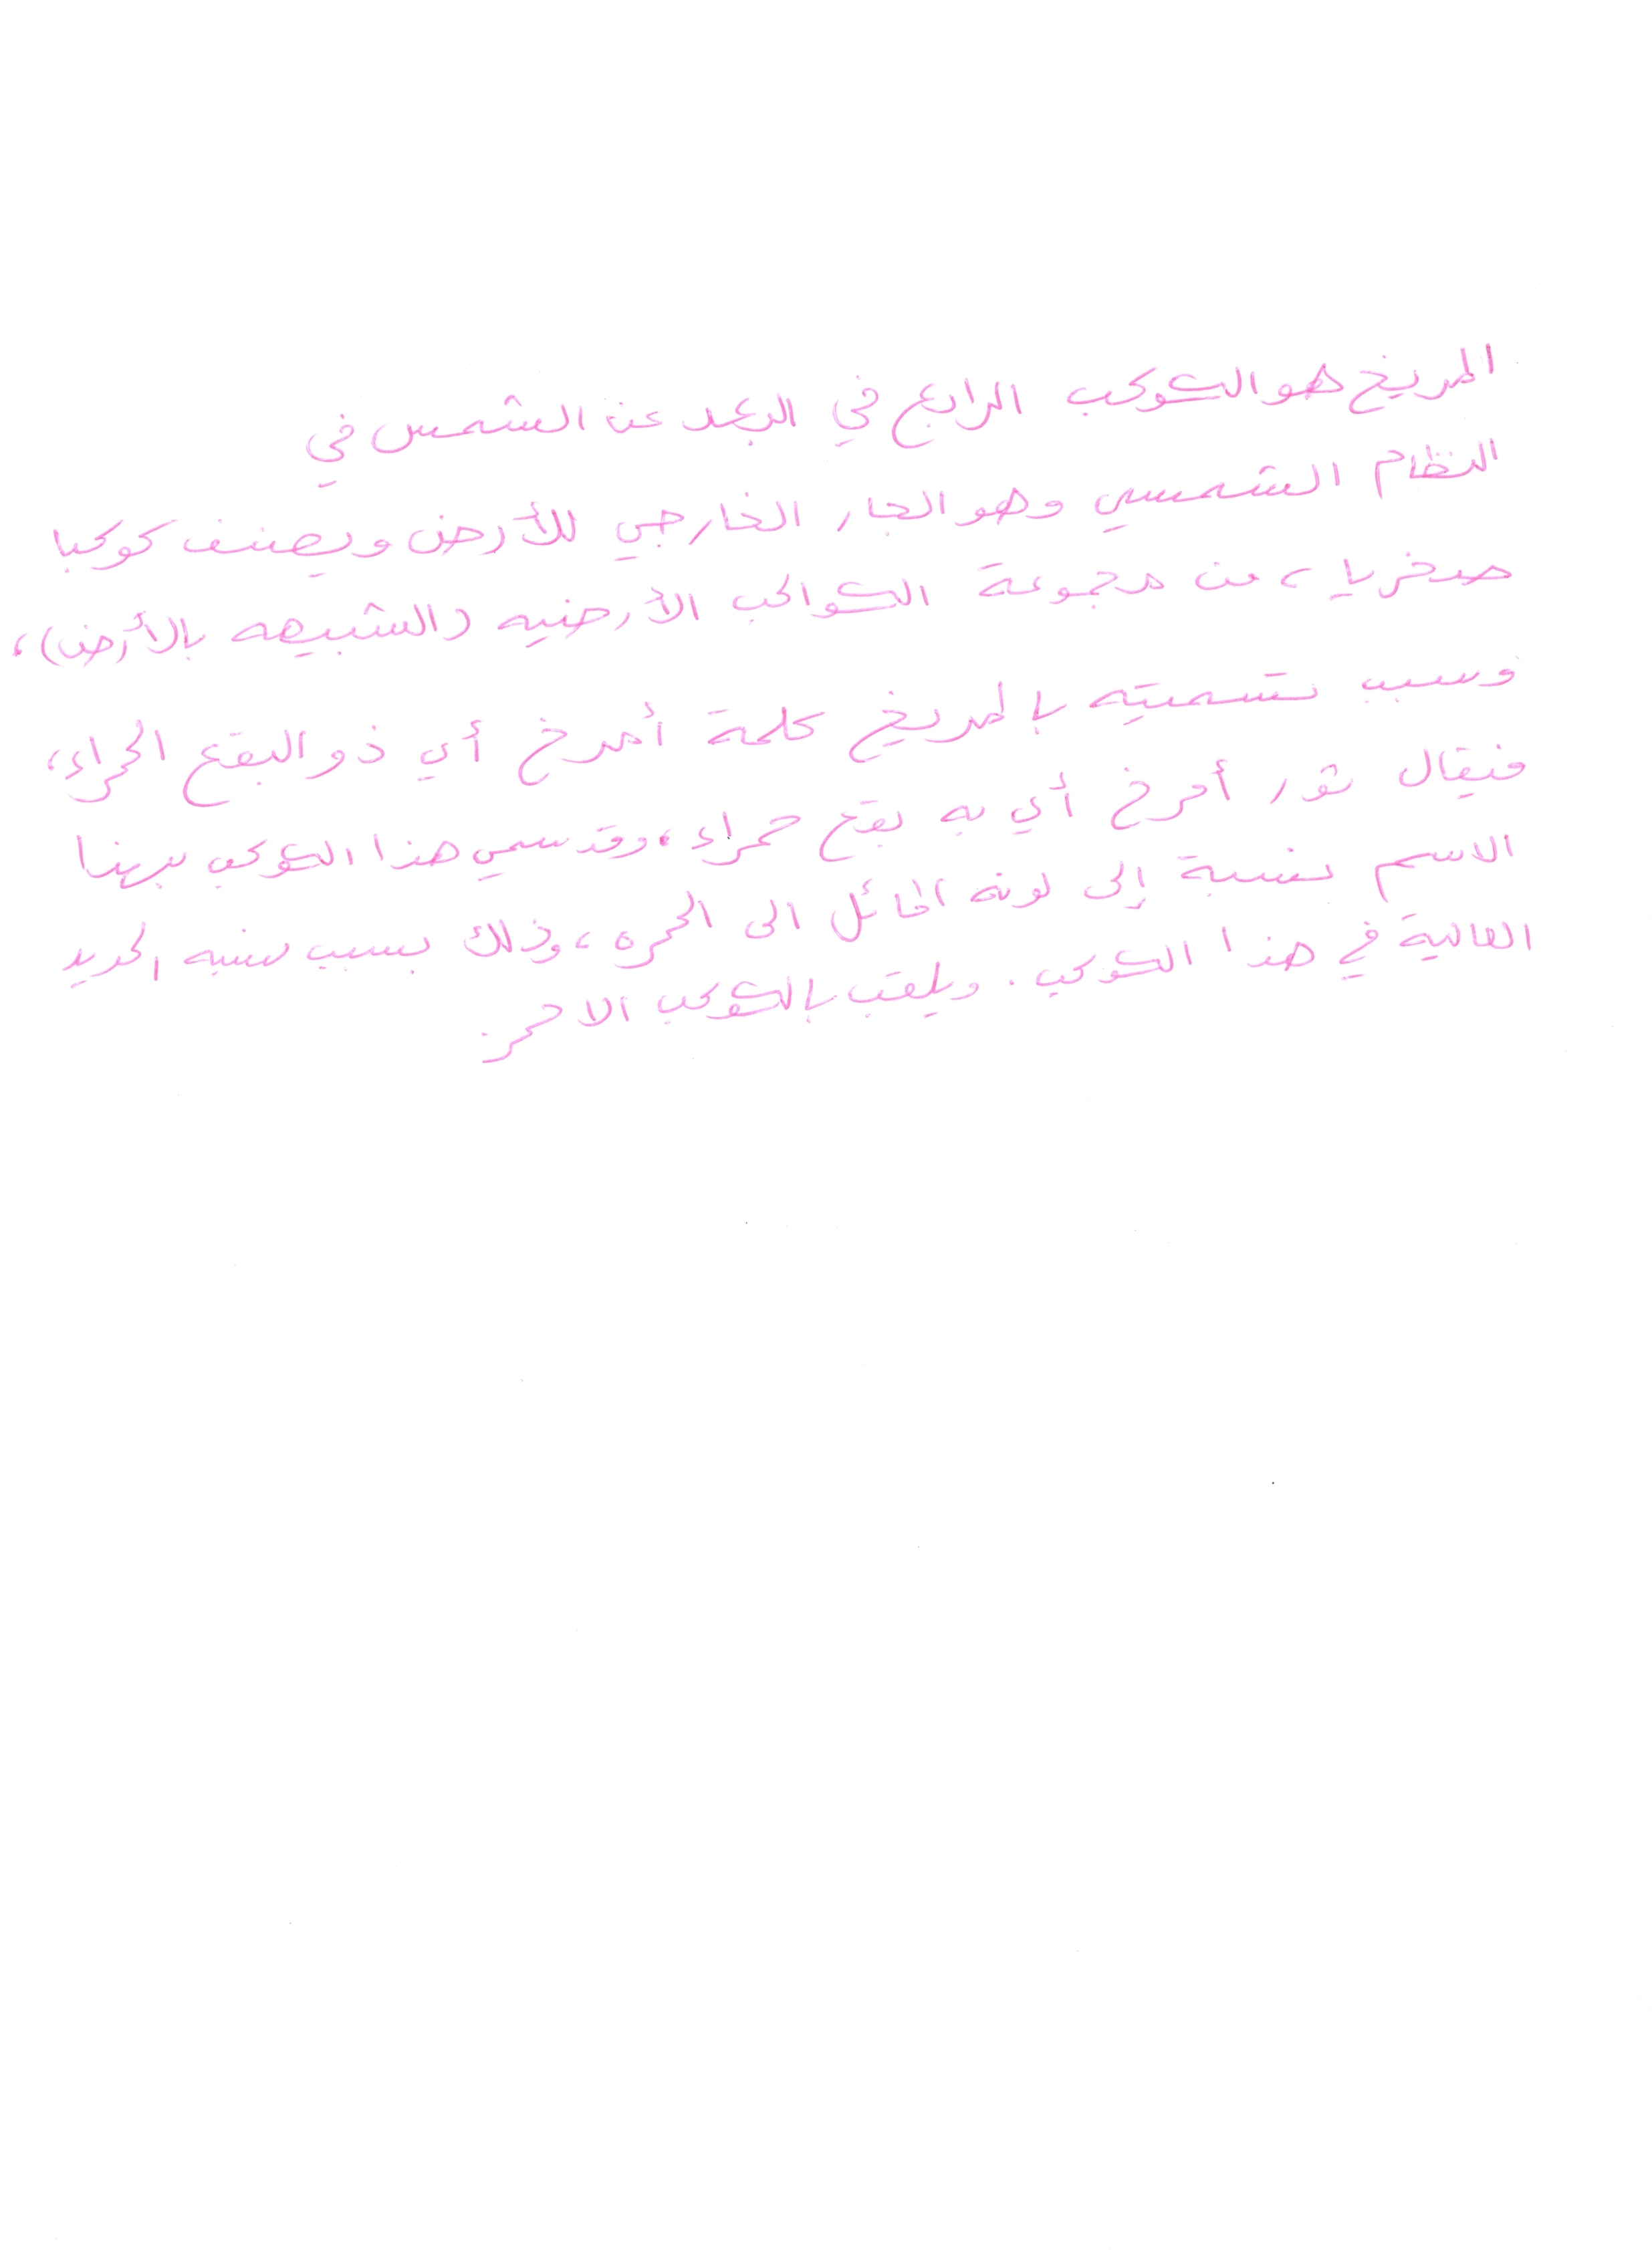 المريخ هو الكوكب الرابع في البعد عن الشمس في
النظام الشمسي وهو الجار الخارجي للأرض ويصنف كوكبا
صخريا، من مجموعة الكواكب الأرضيه (الشبيهه بالأرض)،
وسبب تسميته بالمريخ كلمة أمرخ أي ذو البقع الحمراء،
فيقال ثور أمرخ أي به بقع حمراء، وقد سمي هذا الكوكب بهذا
الاسم نسبة إلى لونه المائل الى الحمره، وذلك بسبب نسبه الحديد
العالية في هذا الكوكب. ويلقب بالكوكب الاحمر.